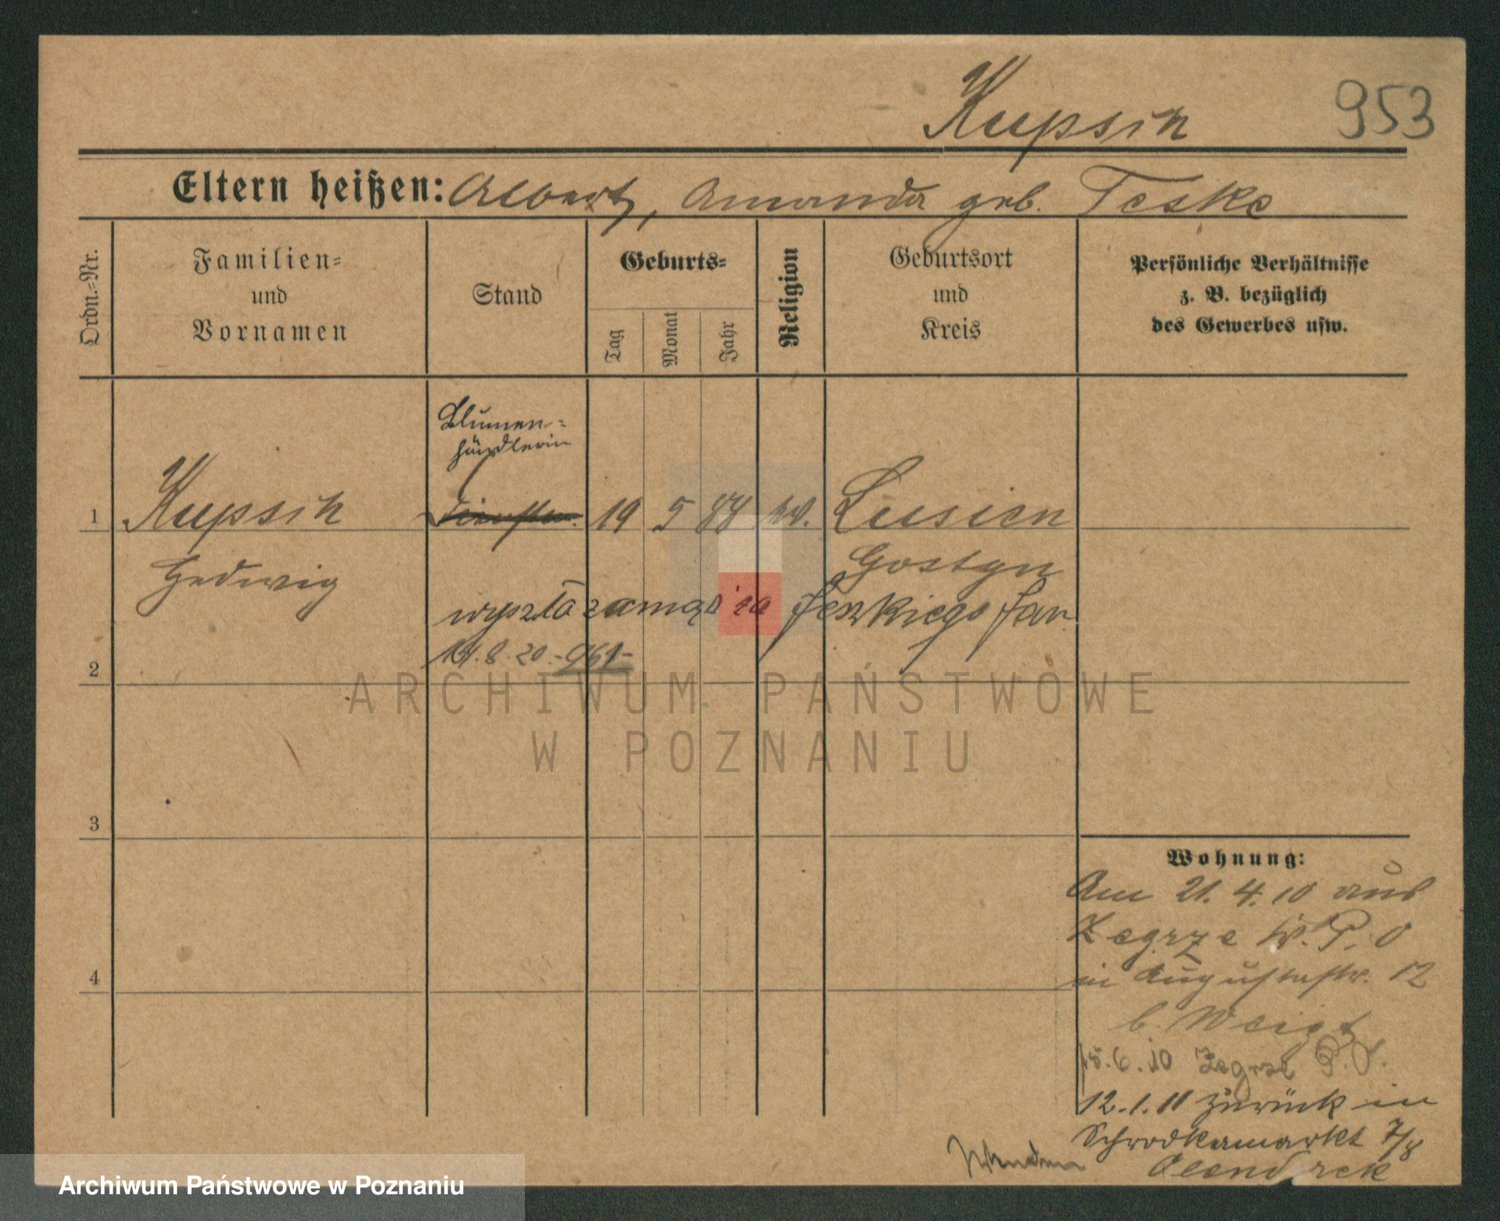 Kupsih
953
Eltern heißen: Albert, Amanda geb. Teske
Ordn.-Nr.
Familien-
und
Vornamen
Stand
Geburts-
Tag
Monat
Jahr
Religion
Geburtsort
und
Kreis
Persönliche Verhältnisse
z. B. bezüglich
des Gewerbes usw.
Blumen-
händlerin
1
Kupsih
19 5 88 ev.
Lusien
Hedwig
Gostyn
wyszła zamąż za Feszkiego Jan
8.20.
2
ARCHIWUM PAŃSTWOWE
W POZNANIU
3
Wohnung:
Am 21. 4. 10 aus
Zegrze W. P. O
in Augustastr. 12
b. Weigt
15.6.10 Zegrze P.O.
12.1.11 zurück in
Schrodkamarkt 7/8
Wenden
4
Archiwum Państwowe w Poznaniu